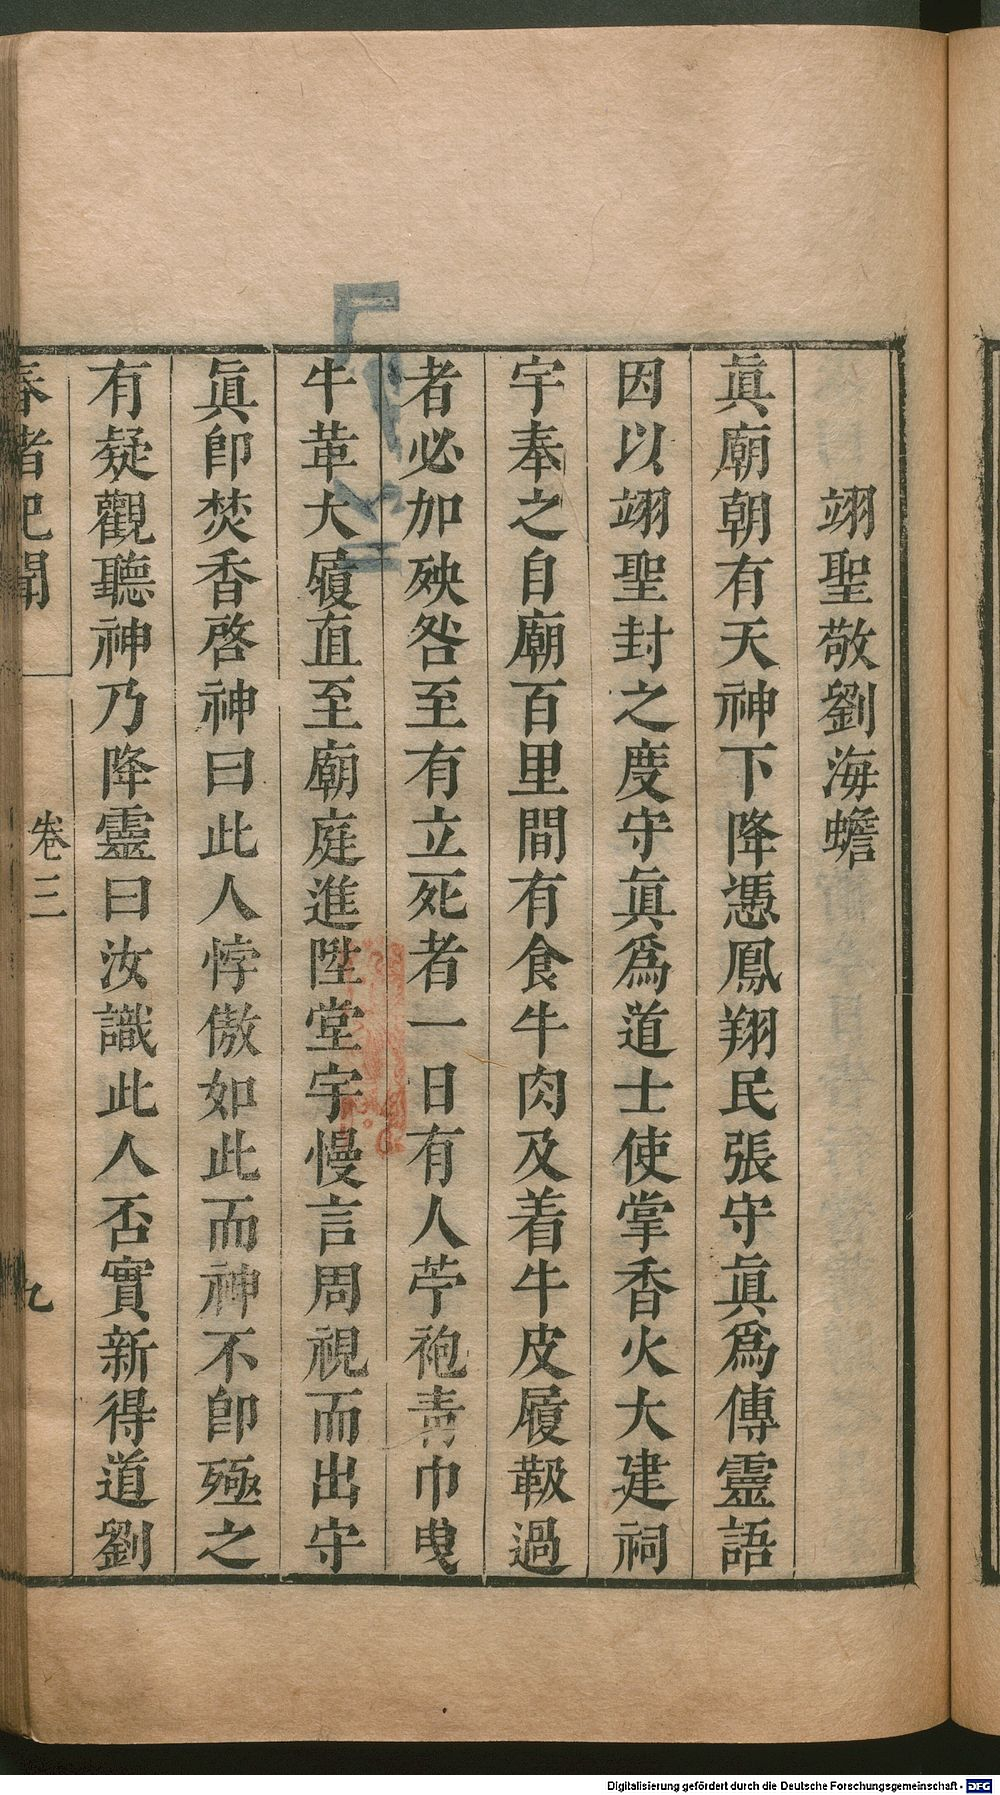 翊聖敬劉海蟾
眞廟朝有天神下降憑鳳翔民張守眞爲傳靈語
因以翊聖封之度守眞爲道士使掌香火大建祠
宇奉之自廟百里間有食牛肉及着牛皮履靸過
者必加殃咎至有立死者一日有人苧袍靑巾曳
牛革大履直至廟庭進陞堂宇慢言周視而出守
眞卽焚香啓神曰此人悖傲如此而神不卽殛之
有疑觀聽神乃降靈曰汝識此人否實新得道劉
春渚紀聞 卷三 九
Digitalisierung gefördert durch die Deutsche Forschungsgemeinschaft - DFG